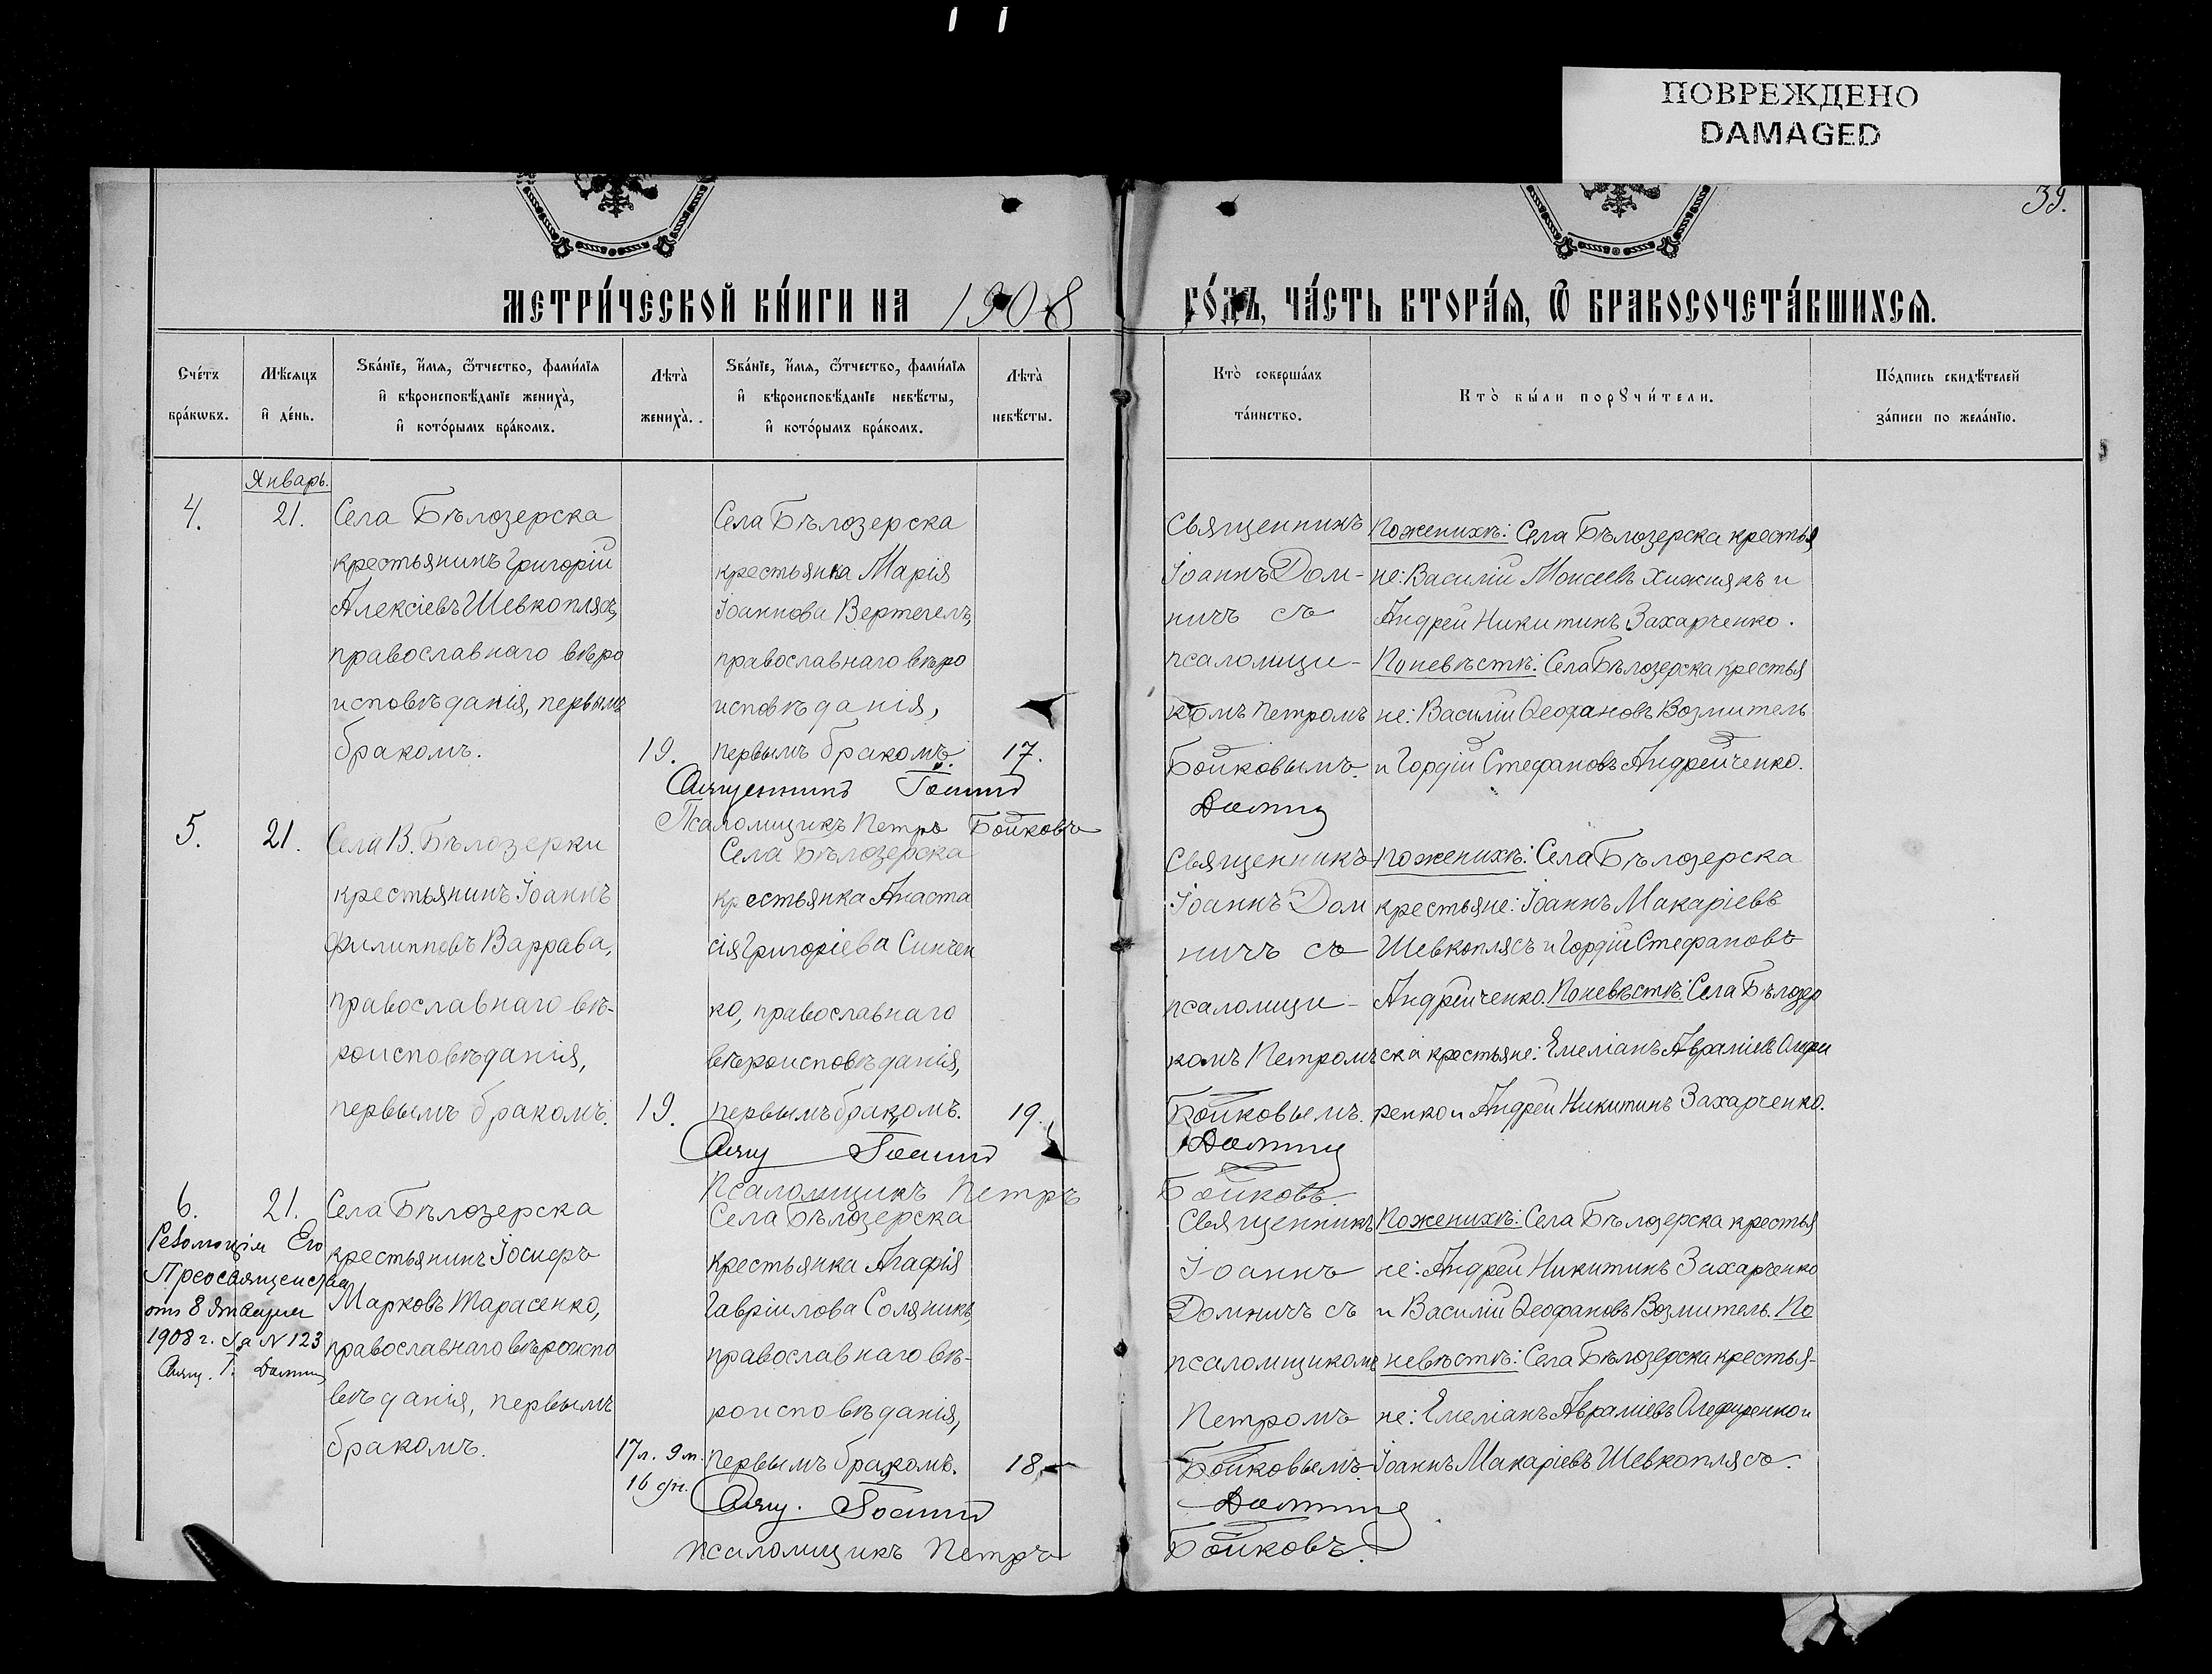 ПОВРЕЖДЕНО
DAMAGED
39.
МЕТРИ́ЧЕСКОЙ КНИ́ГИ НА 1908 ГО́ДЪ, ЧА́СТЬ ВТОРА́Я, Ѽ БРАКОСОЧЕТА́ВШИХСЯ.
Сче́тъ бра́кѡвъ.
Мѣ́сяцъ и҆ де́нь.
Ѕва́нїе, и҆́мя, ѻ҆́тчество, фами́лїя
и҆ вѣроисповѣ́данїе жениха̀,
и҆ кото́рымъ бра́комъ.
Лѣта̀ жениха̀.
Ѕва́нїе, и҆́мя, ѻ҆́тчество, фами́лїя
и҆ вѣроисповѣ́данїе невѣ́сты,
и҆ кото́рымъ бра́комъ.
Лѣта̀ невѣ́сты.
Кто̀ соверша́лъ
та́инство.
Кто̀ бы́ли порꙋчи́тели.
По́дпись свидѣ́телей
за́писи по жела́нїю.
Январь.
4.
21.
Села Бѣлозерска
крестьянинъ Григорій
Алексіевъ Шевкоплясъ,
православнаго вѣро
исповѣданія, первымъ
бракомъ.
19.
Села Бѣлозерска
крестьянка Марія
Іоаннова Вертегелъ,
православнаго вѣро
исповѣданія,
первымъ бракомъ.
17.
Священникъ Іоаннъ Домнич
Псаломщикъ Петръ Бойковъ
Священникъ
Іоаннъ Дом-
ничъ съ
псаломщи-
комъ Петромъ
Бойковымъ.
По женихѣ: Села Бѣлозерска крестья
не: Василій Моисеевъ Хижнякъ и
Андрей Никитинъ Захарченко.
По невѣстѣ: Села Бѣлозерска крестья
не: Василій Ѳеофановъ Возмитель
и Гордій Стефановъ Андрейченко.
5.
21.
Села В. Бѣлозерки
крестьянинъ Іоаннъ
Филипповъ Варрава,
православнаго вѣ-
роисповѣданія,
первымъ бракомъ.
19.
Села Бѣлозерска
крестьянка Анаста
сія Григоріева Синчен
ко, православнаго
вѣроисповѣданія,
первымъ бракомъ.
19.
Свящ Іоаннъ Домнич
Псаломщикъ Петръ Бойковъ
Священникъ
Іоаннъ Дом
ничъ съ
псаломщи-
комъ Петромъ
Бойковымъ.
По женихѣ: Села Бѣлозерска
крестьяне: Іоаннъ Макаріевъ
Шевкоплясъ и Гордій Стефановъ
Андрейченко. По невѣстѣ: Села Бѣлозер
ска крестьяне: Емеліанъ Авраміевъ Олефи
ренко и Андрей Никитинъ Захарченко.
6.
21.
Резолюція Его
Преосвященства
отъ 8 Января
1908 г. За N 123
Свящ. І. Домнич
Села Бѣлозерска
крестьянинъ Іосифъ
Марковъ Тарасенко,
православнаго вѣроиспо
вѣданія, первымъ
бракомъ.
17 л. 9 м.
16 дн.
Села Бѣлозерска
крестьянка Агафія
Гавріилова Соляникъ,
православнаго вѣ-
роисповѣданія,
первымъ бракомъ.
18.
Свящ. Іоаннъ Домнич
Псаломщикъ Петръ Бойковъ.
Священникъ
Іоаннъ
Домничъ съ
псаломщикомъ
Петромъ
Бойковымъ.
По женихѣ: Села Бѣлозерска крестья
не: Андрей Никитинъ Захарченко
и Василій Ѳеофановъ Возмитель. По
невѣстѣ: Села Бѣлозерска крестья-
не: Емеліанъ Авраміевъ Олефиренко и
Іоаннъ Макаріевъ Шевкоплясъ.